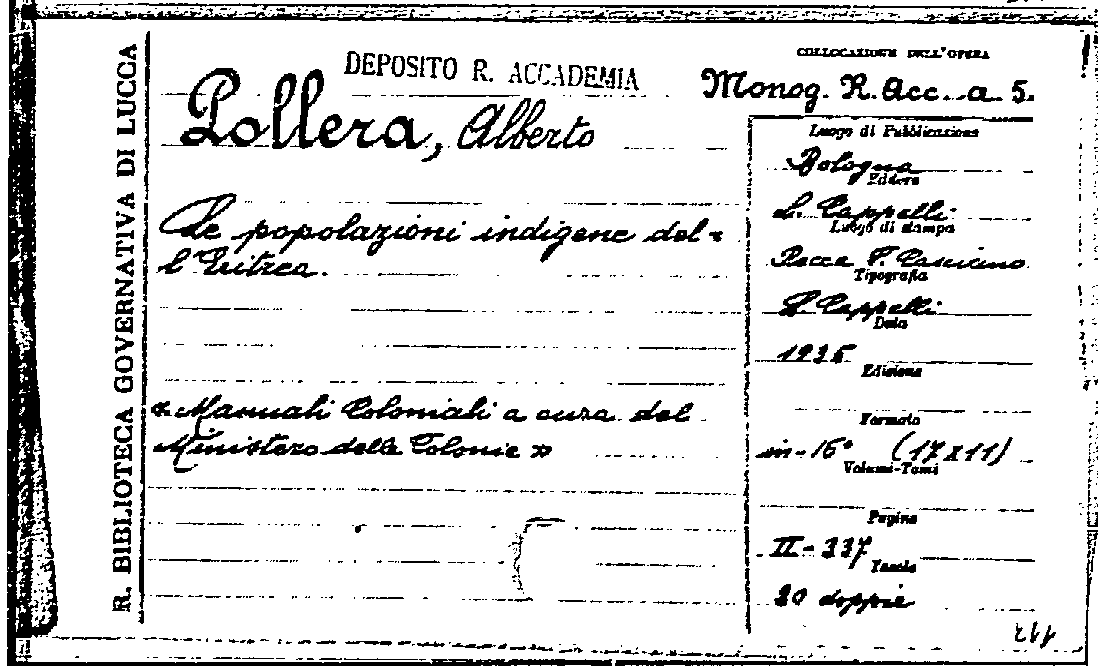 R. BIBLIOTECA GOVERNATIVA DI LUCCA
DEPOSITO R. ACCADEMIA
Pollera, Alberto
Le popolazioni indigene del-
l'Eritrea.
« Manuali Coloniali a cura del
Ministero delle Colonie »
COLLOCAZIONE DELL'OPERA
Monog. R. Acc. a. 5.
Luogo di Pubblicazione
Bologna
Editore
L. Cappelli
Luogo di stampa
Rocca S. Casciano
Tipografia
L. Cappelli
Data
1935
Edizione
Formato
in-16° (17x11)
Volumi-Tomi
Pagine
II-337
Tavole
20 doppie